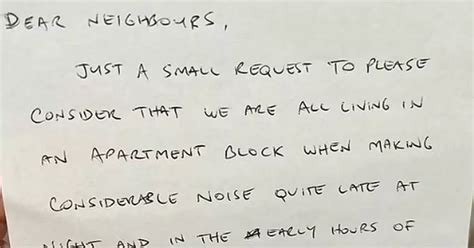 DEAR NEIGHBOURS,
JUST A SMALL REQUEST TO PLEASE
CONSIDER THAT WE ARE ALL LIVING IN
AN APARTMENT BLOCK WHEN MAKING
CONSIDERABLE NOISE QUITE LATE AT
NIGHT AND IN THE EARLY HOURS OF